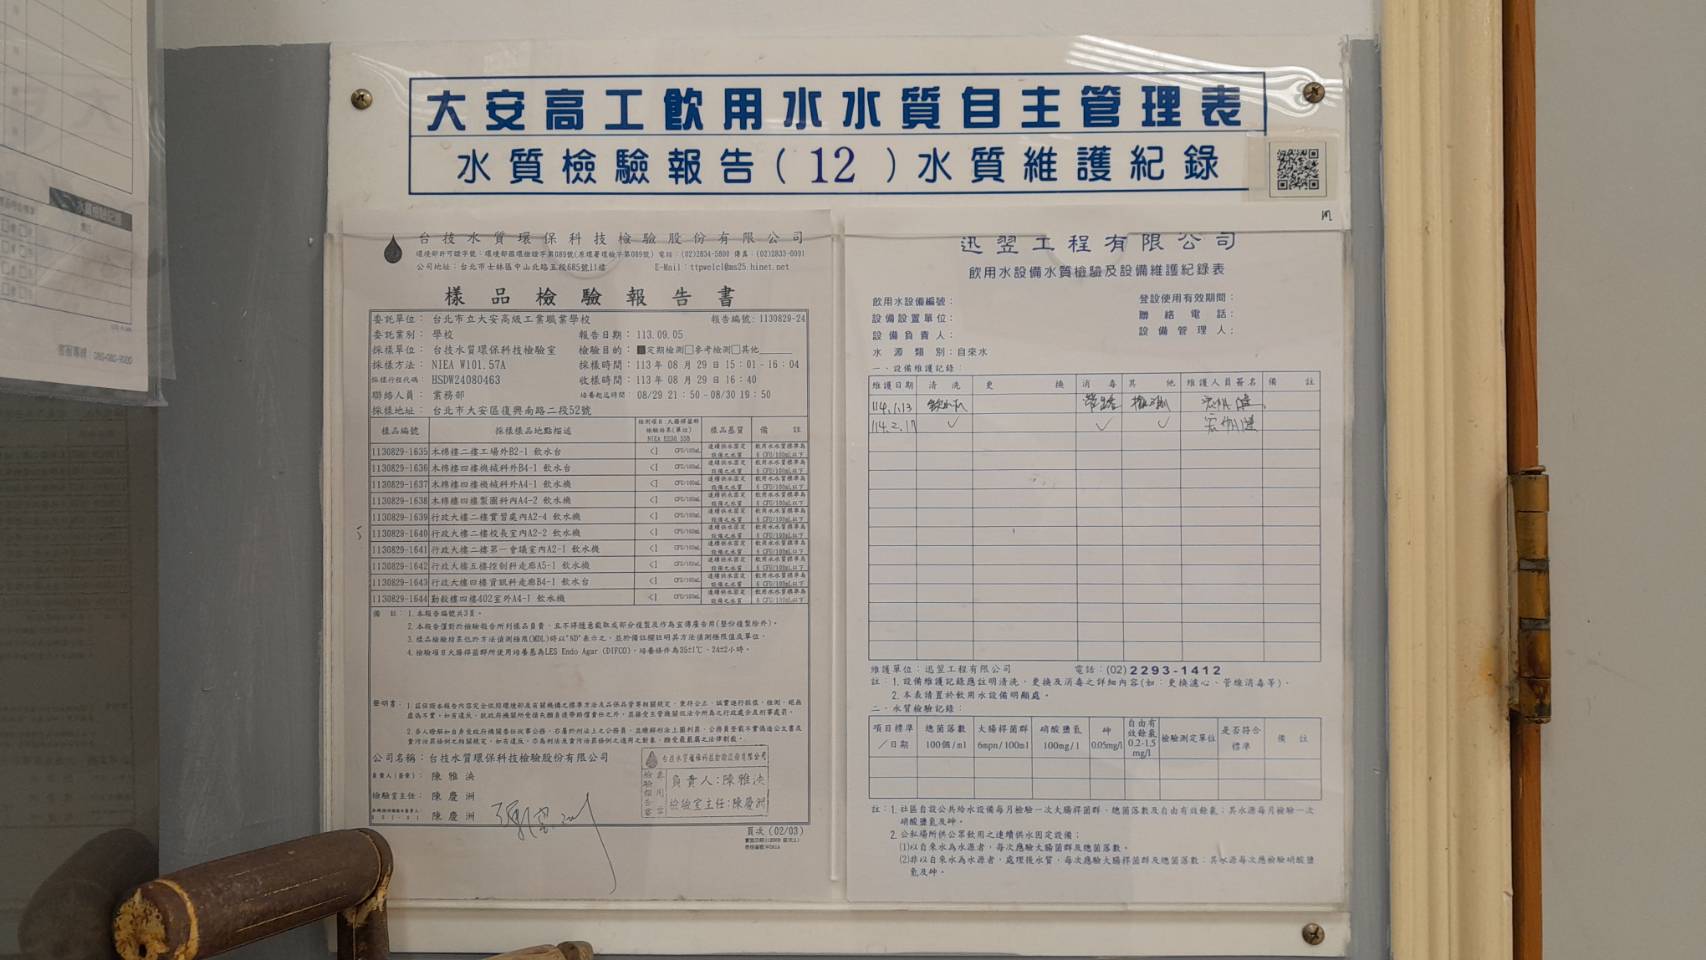 大安高工飲用水水質自主管理表
水質檢驗報告(12)水質維護紀錄
台技水質環保科技檢驗股份有限公司
公司地址：台北市士林區中山北路五段685號11樓 E-Mail：ttpwclcl@ms25.hinet.net
樣品檢驗報告書
委託單位：台北市立大安高級工業職業學校 報告編號：1130829-24
委託業別：學校 報告日期：113.09.05
採樣單位：台技水質環保科技檢驗室 檢驗目的：■定期檢測□參考檢測□其他
採樣方法：NIEA W101.57A 採樣時間：113 年 08 月 29 日 15：01 - 16：04
採樣行程代碼：HSDW24080463 收樣時間：113 年 08 月 29 日 16：40
聯絡人員：業務部 培養起迄時間：08/29 21：50 -08/30 19：50
採樣地址：台北市大安區復興南路二段52號
樣品編號 採樣樣品地點描述 樣品基質 備註
1130829-1635 木棉樓二樓工場外B2-1 飲水台 <1 CFU/100mL
1130829-1636 木棉樓四樓機械科外B4-1 飲水台 <1 CFU/100mL
1130829-1637 木棉樓四樓機械科外A4-1 飲水機 <1 CFU/100mL
1130829-1638 木棉樓四樓製圖科內A4-2 飲水機 <1 CFU/100mL
1130829-1639 行政大樓二樓實習處內A2-4 飲水機 <1 CFU/100mL
1130829-1640 行政大樓二樓校長室內A2-2 飲水機 <1 CFU/100mL
1130829-1641 行政大樓二樓第一會議室內A2-1 飲水機 <1 CFU/100mL
1130829-1642 行政大樓五樓控制科走廊A5-1 飲水機 <1 CFU/100mL
1130829-1643 行政大樓四樓資訊科走廊B4-1 飲水台 <1 CFU/100mL
1130829-1644 勤毅樓四樓402室外A4-1 飲水機 <1 CFU/100mL
備 註：1.本報告編號共3頁。
2.本報告僅對於檢驗報告所列樣品負責，且不得隨意截取或部分複製及作為宣傳廣告用(整份複製除外)。
3.樣品檢驗結果低於方法偵測極限(MDL)時以"ND"表示之，並於備註欄註明其方法偵測極限值及單位。
4.檢驗項目大腸桿菌群所使用培養基為LES Endo Agar (DIFCO)，培養條件為35±1℃、24±2小時。
公司名稱：台技水質環保科技檢驗股份有限公司
負責人(簽章)：陳雅泱
檢驗室主任：陳慶洲
陳慶洲
台技水質環保科技檢驗股份有限公司
檢驗報告專用章
負責人：陳雅泱
檢驗室主任：陳慶洲
頁次 (02/03)
迅翌工程有限公司
飲用水設備水質檢驗及設備維護紀錄表
飲用水設備編號： 登設使用有效期間：
設備設置單位： 聯絡電話：
設備負責人： 設備管理人：
水源類別：自來水
一、設備維護記錄：
維護日期 清洗 更換 消毒 其他 維護人員簽名 備註
114.1.13
114.2.17 ✓ ✓ ✓
維護單位：迅翌工程有限公司 電話：(02)2293-1412
註：1.設備維護記錄應註明清洗、更換及消毒之詳細內容(如：更換濾心、管線消毒等)。
2.本表請置於飲用水設備明顯處。
二、水質檢驗記錄：
項目標準／日期 總菌落數 100個/ml 大腸桿菌群 6mpn/100ml 硝酸鹽氮 100mg/l 砷 0.05mg/l 自由有效餘氯 0.2-1.5 mg/l 檢驗測定單位 是否符合標準 備註
註：1.社區自設公共給水設備每月檢驗一次大腸桿菌群、總菌落數及自由有效餘氯；其水源每月檢驗一次
硝酸鹽氮及砷。
2.公私場所供公眾飲用之連續供水固定設備：
(1)以自來水為水源者，每次應驗大腸桿菌群及總菌落數。
(2)非以自來水為水源者，處理後水質，每次應驗大腸桿菌群及總菌落數；其水源每次應檢驗硝酸鹽
氮及砷。